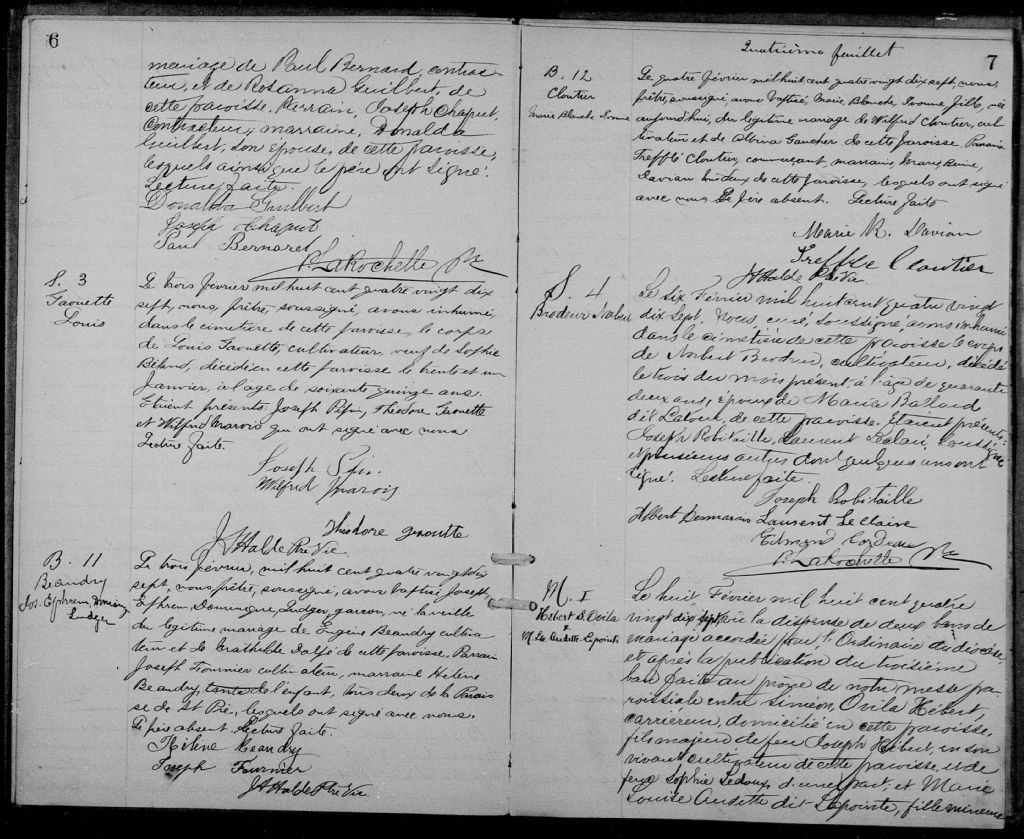 6
mariage de Paul Bernard, contrac-
teur, et de Rosanna Guilbert, de
cette paroisse, Parrain, Joseph Chaput,
Contracteur, marraine, Donalda
Guilbert, son epouse, de cette paroisse,
lesquels ainsi que le père ont signé.
Lecture faite.
Donalda Guilbert
Joseph Chaput
Paul Bernard
P. LaRochelle Ptr
S. 3
Faouette
Louis
Le trois février mil huit cent quatre vingt dix
sept, nous, prêtre, soussigné, avons inhumé,
dans le cimetière de cette paroisse, le corps
de Louis Faouette, cultivateur, veuf de Sophie
décédé en cette paroisse le trente et un
Janvier, à l'age de soixante quinze ans.
Etaient présents Joseph Pepin, Théodore Faouette
et Wilfrid Marois qui ont signé avec nous
Lecture faite.
Joseph
Wilfrid Marois
Théodore
J A Halde Ptre Vic.
B. 11
Beaudry
Jos. Ephrem, Dominiq
Ludger
Le trois février, mil huit cent quatre vingt dix
sept, nous prêtre, soussigné, avons baptisé Joseph,
Ephrem, Dominique, Ludger, garçon, né la veille
du légitime mariage de Eugène Beaudry cultiva
teur et de de cette paroisse. Parrain
Joseph Fournier cultivateur, marraine Hélène
Beaudry, tante de l'enfant, tous deux de la Parois
se de St Pie, lesquels ont signé avec nous.
Le père absent. Lecture faite.
Hélène Beaudry
Joseph Fournier
J A Halde Ptre Vic.
Quatrième feuillet
7
B. 12
Cloutier
Marie Blanche Ivonne
Le quatre février mil huit cent quatre vingt dix sept, nous,
prêtre, soussigné, avons baptisé, Marie Blanche, Ivonne, fille, née
aujourd'hui, du légitime mariage de Wilfrid Cloutier, cul
tivateur et de Albina Gaucher de cette paroisse. Parrain
Trefflé Cloutier, commerçant, marraine Marie Reine,
Davian tous deux de cette paroisse, lesquels ont signé
avec nous Le père absent. Lecture faite
Marie R. Davian
Trefflé Cloutier
J A Halde Ptre Vic.
S. 4
Brodeur Norbert
Le six Février mil huit cent quatre vingt
dix sept, Nous, curé, soussigné avons inhumé
dans le cimetière de cette paroisse le corps
de Norbert Brodeur, cultivateur, décédé
le trois du mois présent, à l'age de quarante
deux ans, epoux de Maria Ballard
dit Latour, de cette paroisse. Etaient présents:
Joseph Robitaille, Laurent soussigné
et plusieurs autres dont quelques uns ont
signé. Lecture faite.
Joseph Robitaille
Albert Desmarais Laurent Leclaire
Edmond
P. LaRochelle Ptr
M. I
Hebert S. Ovila
&
M. Ls Audette Lapointe
Le huit Février mil huit cent quatre
vingt dix sept, vû la dispense de deux bans de
mariage accordée par l'Ordinaire du diocèse,
et après la publication du troisième
ban faite au prône de notre messe pa-
roissiale entre Siméon, Ovila Hébert,
carrieren, domicilié en cette paroisse,
fils majeur de feu Joseph Hébert, en son
vivant cultivateur de cette paroisse, et de
feue Sophie Ledoux, d'une part; et Marie
Louise Audette dit Lapointe, fille mineure